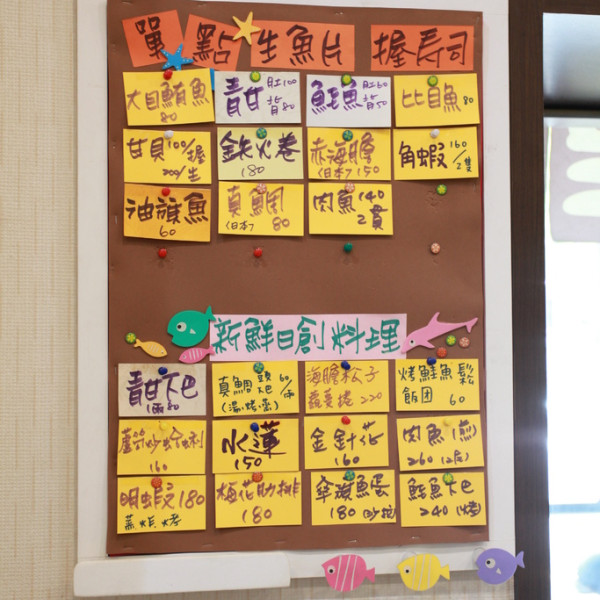 單點生魚片 握壽司
大目鮪魚
80
青甘 肚100
背80
魽魚 肚60
背50
比目魚 80
甘貝 100/握
200/生
鉄火卷
180
赤海膽
(日本) 150
角蝦 160
/2隻
油旗魚
60
真鯛
(日本) 80
肉魚 140
2貫
新鮮日創料理
青甘下巴
1兩80
真鯛 頭 60
下巴 /兩
海膽松子
220
烤鮭魚鬆
飯团 60
蘆筍炒蛤蜊
160
水蓮
150
金針花
160
肉魚(煎)
260 (2尾)
明蝦180
蒸.炸.烤
梅花肋排
180
魚蛋
180
下巴
240 (烤)